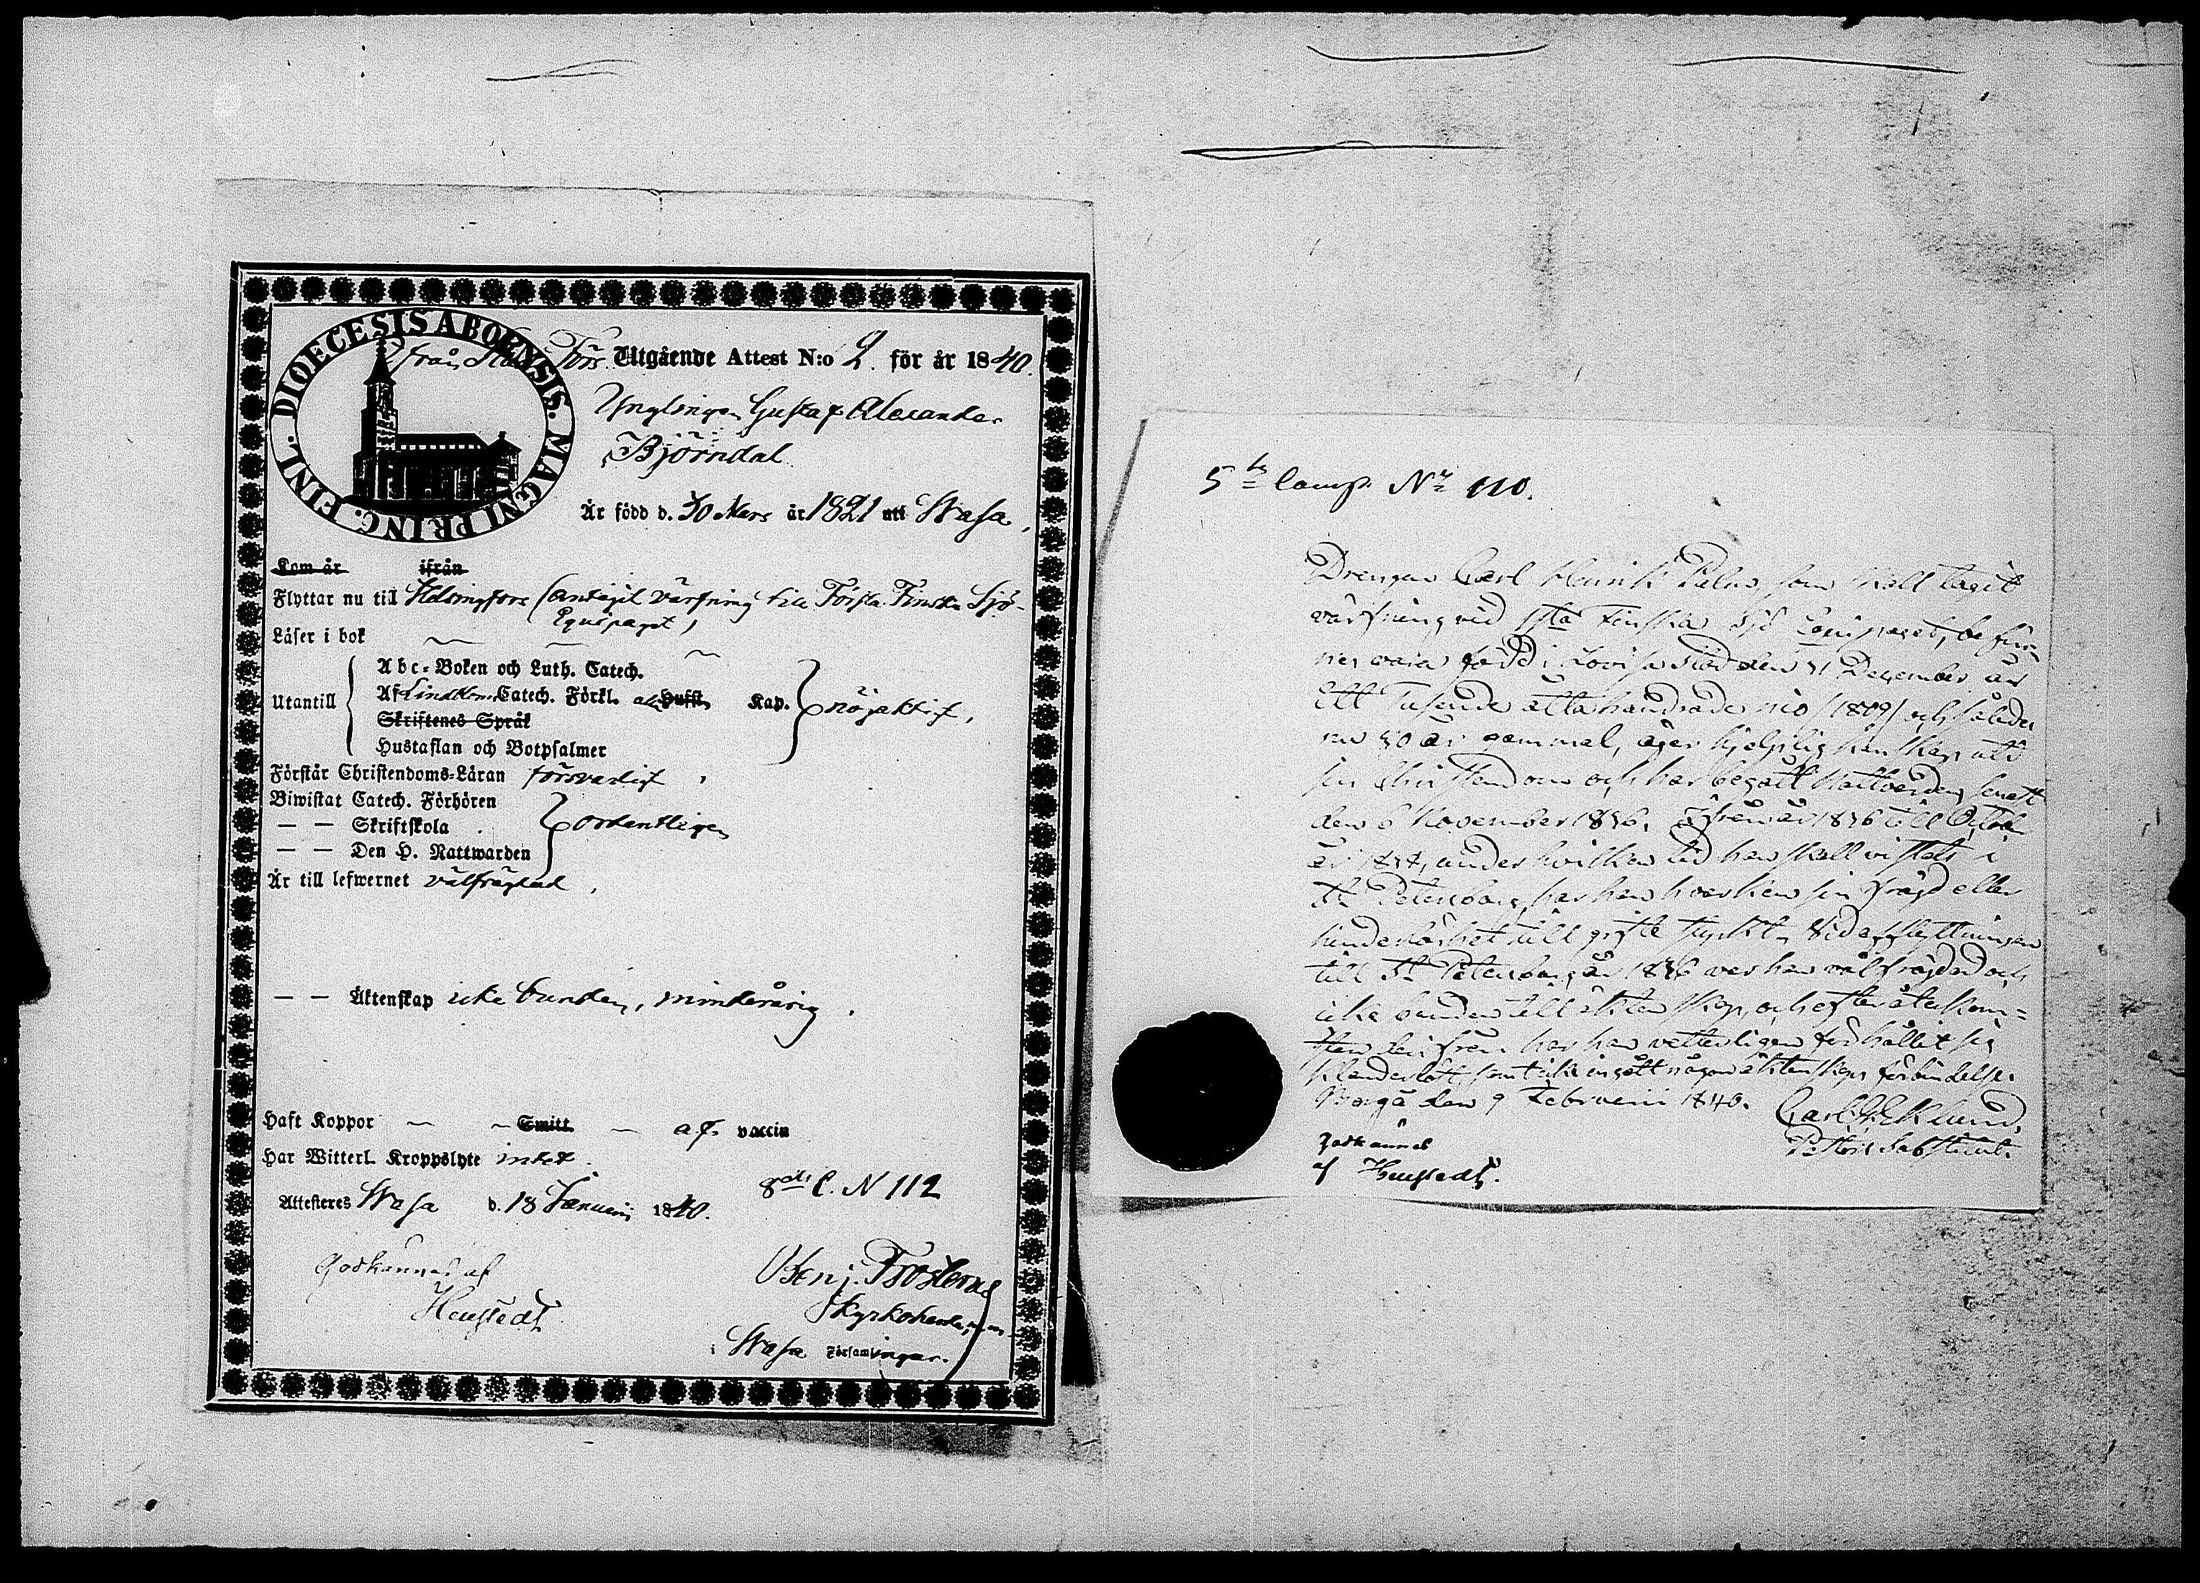 DIOECESIS ABOENSIS. MAGNI PRINC. FINL.
från Förs. Utgående Attest N:o 2. för år 1840.
Ynglingen Gustaf Alexander
Björndal
Är född d. 30 Mars år 1821 uti Wasa,
Kom år ifrån
Flyttar nu till Helsingfors (antagit värfning till Första Finska Sjö-
Equipaget)
Läser i bok
Abc-Boken och Luth. Catech.
Utantill Af Lindbloms Catech. Förkl. all Hufst. Kap. nöjaktigt,
Skriftenes Språk
Hustaflan och Botpsalmer
Förstår Christendoms-Läran försvarligt,
Biwistat Catech. Förhören
— — Skriftskola ordentligen
— — Den H. Nattwarden
Är till lefwernet välfrägdad,
— — Äktenskap icke bunden, minderårig.
Haft Koppor — Smitt — af vaccin
Har Witterl. Kroppslyte intet
8de C. N 112
Attesteres Wasa d. 18 Januari 1840.
Godkännes af
Benj. Frosterus
Kyrkoherde
i Wasa Församlingar.
5te Comp. Nr 110.
Drengen Carl Henrik som skall tagit
värfning vid 1sta Finska Sjö Equipaget, befin-
nes vara född i Lovisa stad den 31 December år
Ett Tusende åtta hundrade nio /1809/ och således
nu 30 år gammal, äger hjelplig kunskap uti
sin Christendom och har begått Nattvarden senast
den 6 November 1836. Ifrån år 1836 till
år under hvilken tid han skall vistats i
St Petersborg, har han hvarken sin frägd eller
hinderlöshet till gifte styrkt. Vid afflyttningen
till St Petersborg år 1836 var han välfrägdad och
icke bunden till äktenskap, och efter återkom-
sten derifrån har han vetterligen förhållit sig
klanderlöst, samt icke ingått någon äktenskaps förbindelse.
Borgå den 9 Februarii 1840. Carl Eklund
Godkännes
af